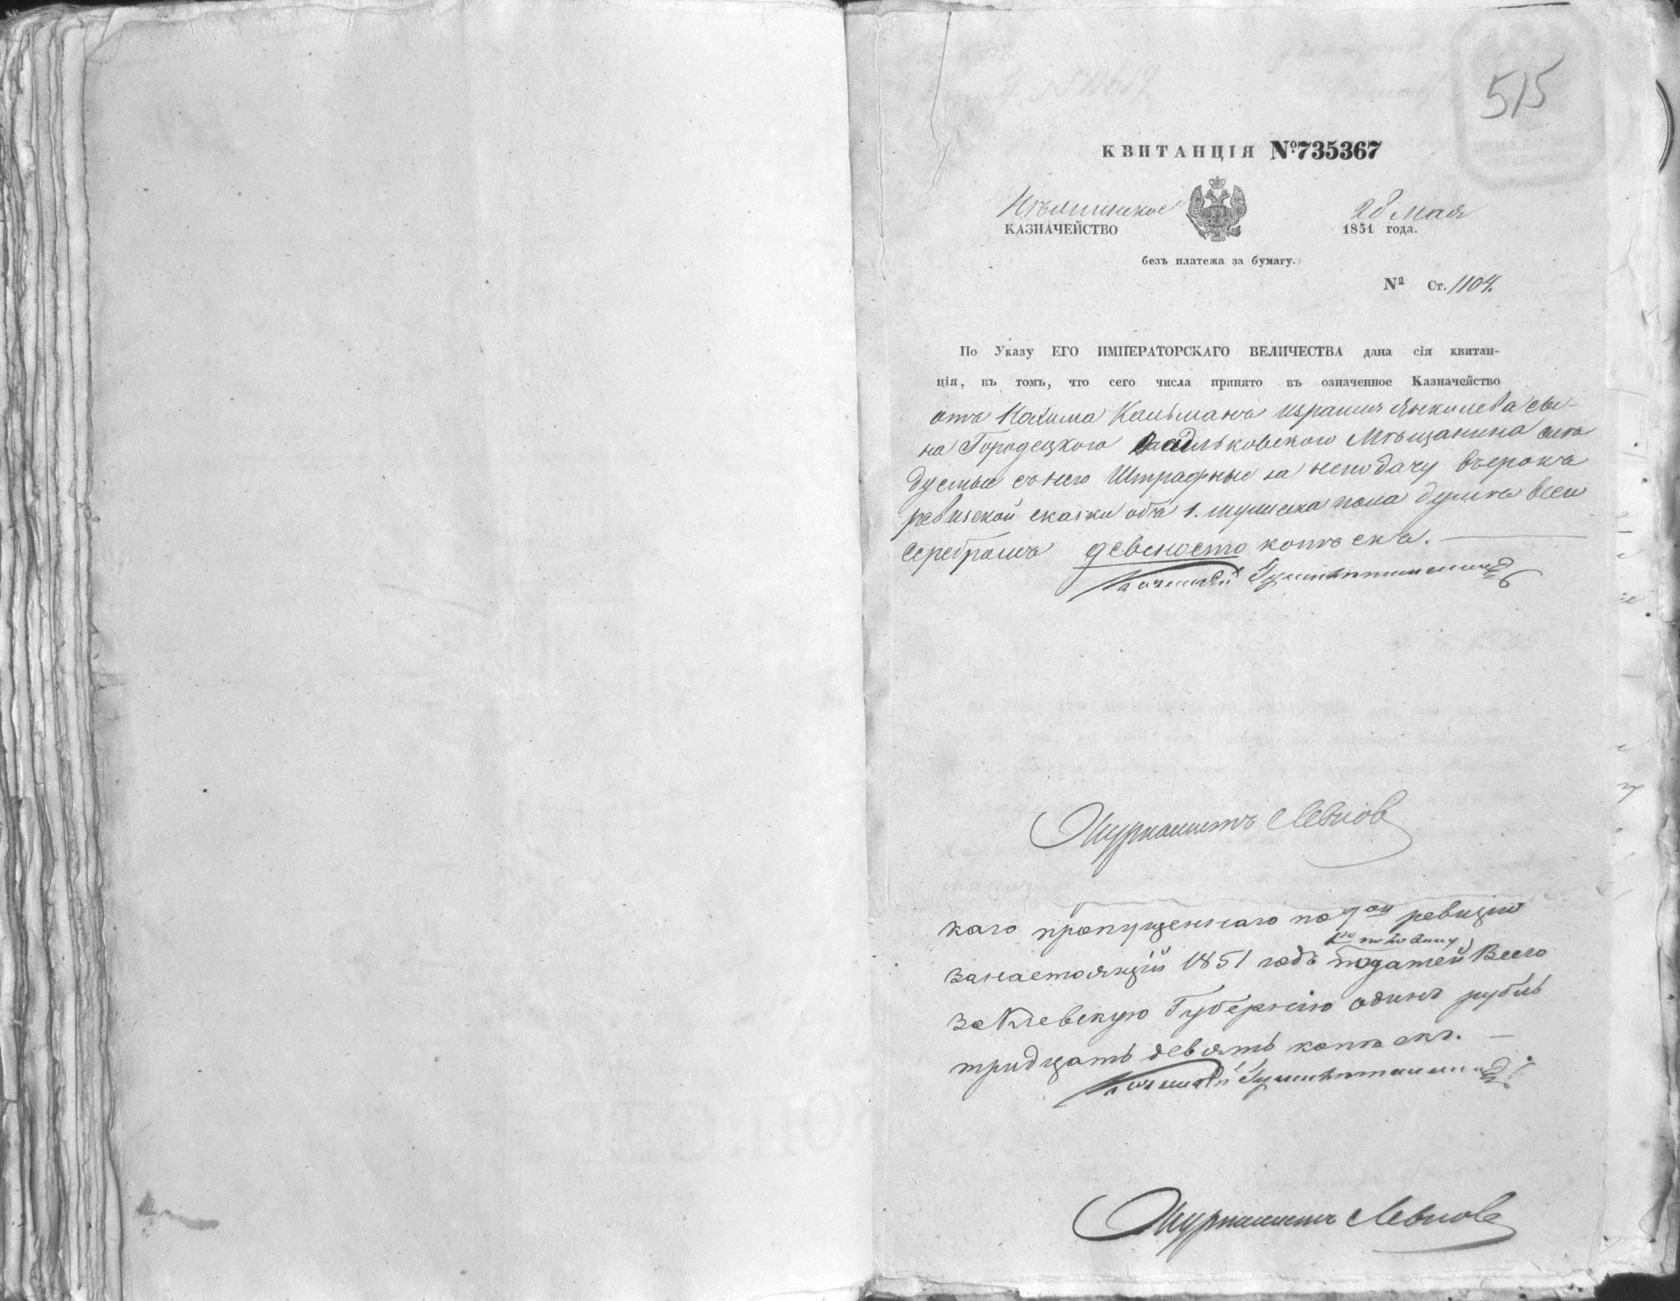 515
КВИТАНЦІЯ №735367
28 мая
КАЗНАЧЕЙСТВО
1851 года.
безъ платежа за бумагу.
№ Ст. 1104.
По Указу ЕГО ИМПЕРАТОРСКАГО ВЕЛИЧЕСТВА дана сія квитан-
ція, въ томъ, что сего числа принято въ означенное Казначейство
отъ Кальмана Израиля Янкилева сы-
на Городецкого Мѣщанина слѣ
дуемые съ него Штрафные за неподачу въ срокъ
ревизской сказки объ 1. мужеска пола душѣ всего
серебромъ девяносто копѣекъ.
Казначей
Журналистъ
каго пропущеннаго по 9ой ревизіи
за настоящій 1851 годъ 1ю половину податей Всего
за Кіевскую Губернію одинъ рубль
тридцать девять копѣекъ.
Казначей
Журналистъ